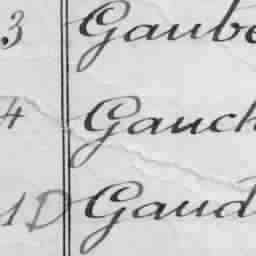 3 Gaube
4 Gauch
1D Gaud